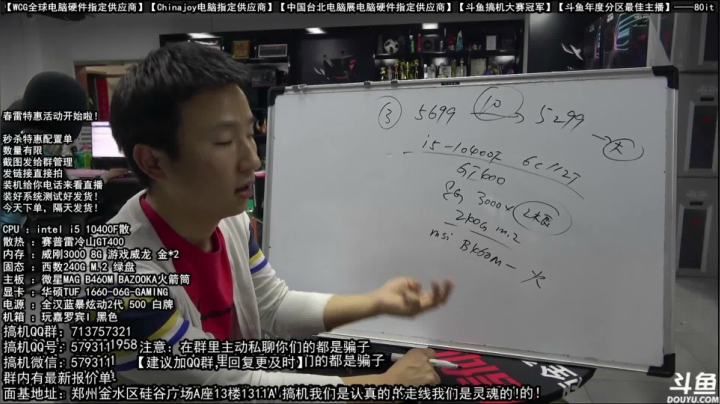 【WCG全球电脑硬件指定供应商】【Chinajoy电脑指定供应商】【中国台北电脑展电脑硬件指定供应商】【斗鱼搞机大赛冠军】【斗鱼年度分区最佳主播】——80it
春雷特惠活动开始啦！
秒杀特惠配置单
数量有限
截图发给群管理
发链接直接拍
装机给你电话来看直播
装好系统测试好发货！
今天下单，隔天发货！
CPU ：intel i5 10400F散
散热 ：赛普雷冷山GT400
内存 ：威刚3000 8G 游戏威龙 金*2
固态 ：西数240G M.2 绿盘
主板 ：微星MAG B460M BAZOOKA火箭筒
显卡 ：华硕TUF 1660-O6G-GAMING
电源 ：全汉蓝暴炫动2代 500 白牌
机箱 ：玩嘉罗宾I 黑色
搞机QQ群：713757321
搞机QQ号：579311958 注意：在群里主动私聊你们的都是骗子
搞机微信：5793111 【建议加QQ群,里回复更及时】们的都是骗子
群内有最新报价单
面基地址：郑州金水区硅谷广场A座13楼1311A 搞机我们是认真的,走线我们是灵魂的!的！
③ 5699 10 5299
i5-10400F 6C12T
GT400
8G 3000×
240G m.2
msi B460M - 火
斗鱼
DOUYU.COM